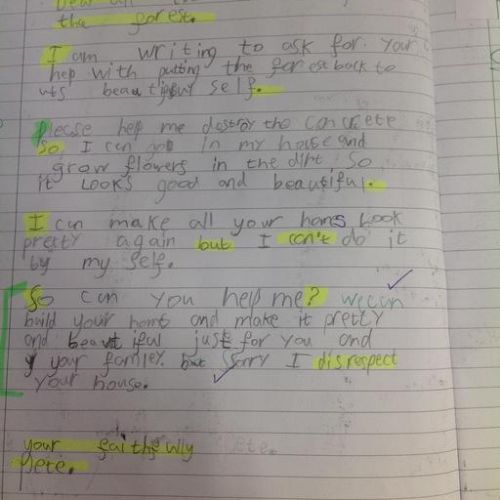 the forest.
I am writing to ask for your
hep with putting the forest back to
uts beautiful self.
please help me destroy the concrete
so I can in my house and
grow flowers in the dirt so
it looks good and beautiful.
I can make all your homes Look
pretty again but I can't do it
by my self.
So can you help me? we can
build your home and make it pretty
and beautiful just for you and
your famley. but sorry I disrespect
your house.
your
Pete.